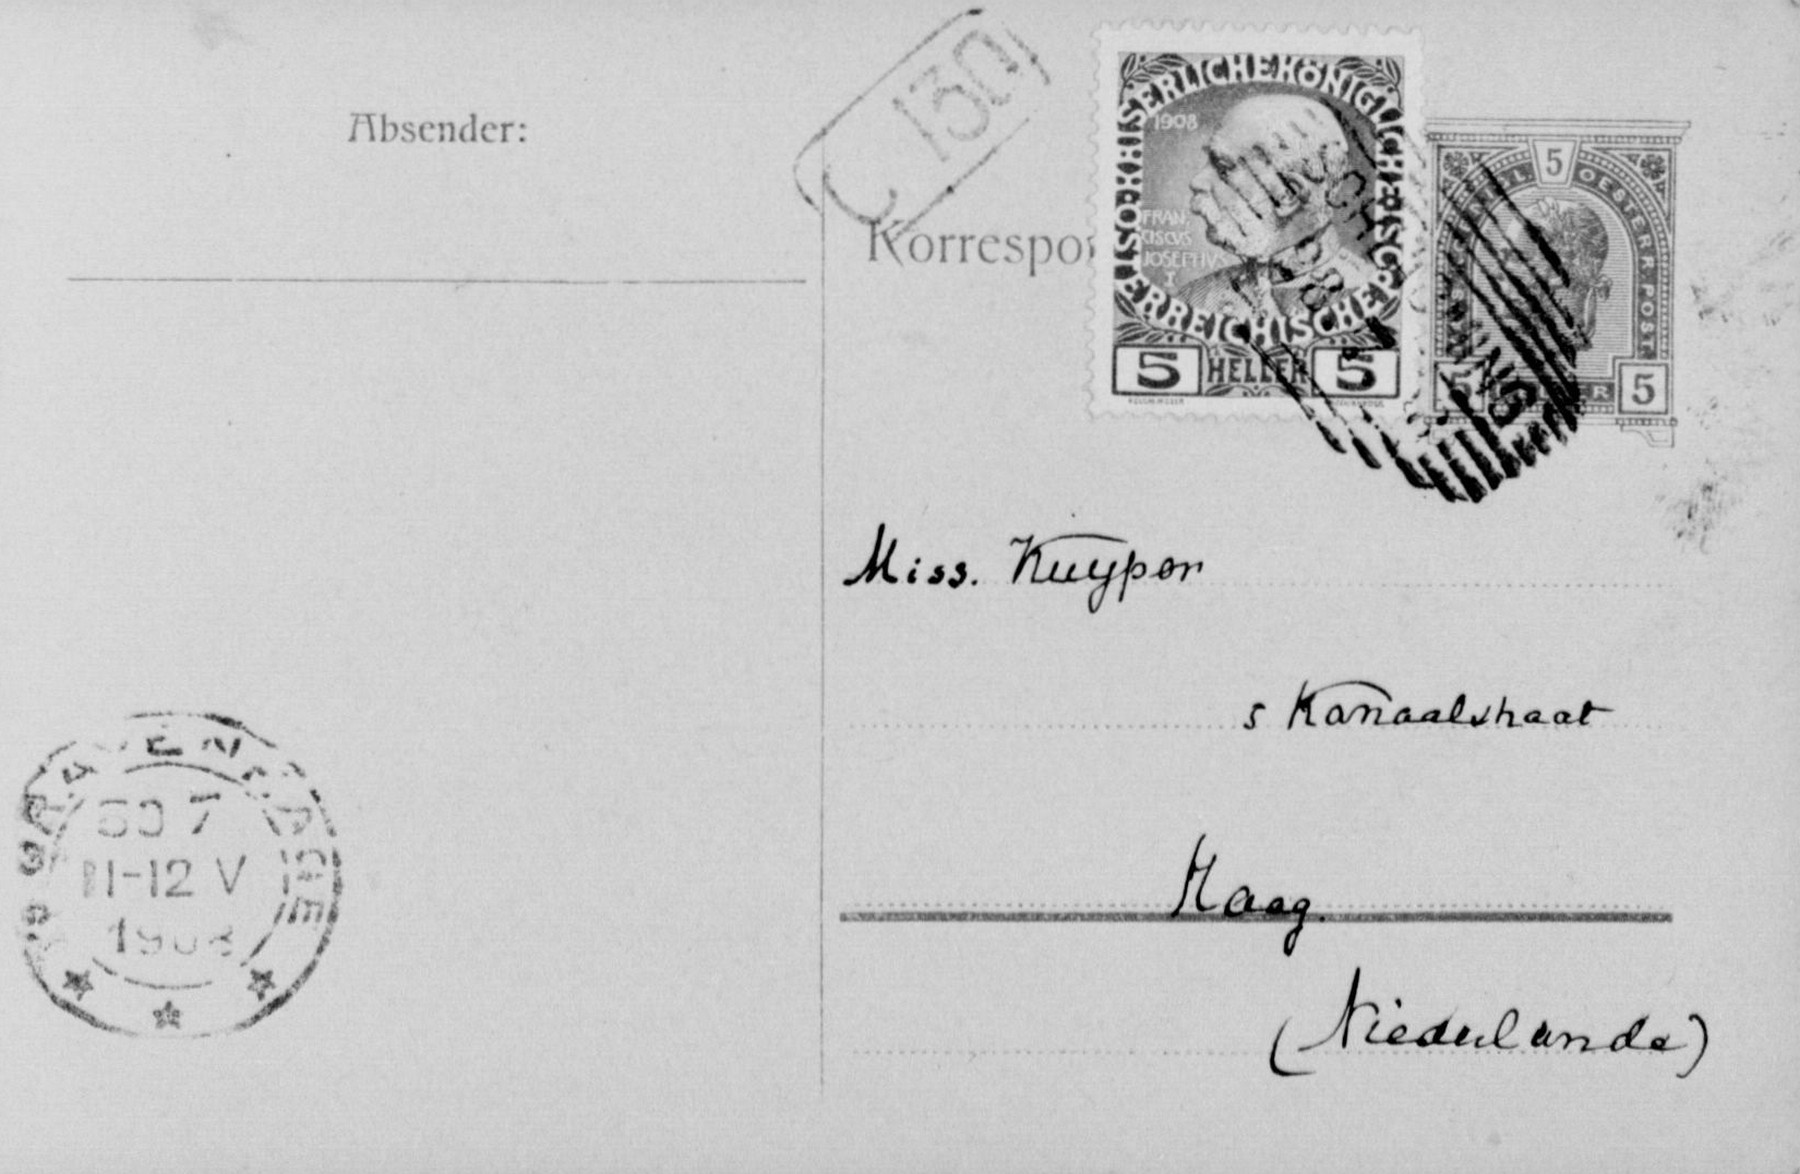 Absender:
C 130
Korrespon
KAISERLICHE KÖNIGLICHE ÖSTERREICHISCHE POST
1908
FRAN
CISCUS
JOSEPHVS
I
5 HELLER 5
5
OESTERR. POST
5 5
Miss. Kuyper
5 Kanaalstraat
Haag.
(Niederlande)
'S GRAVENHAGE
11-12 V
1908